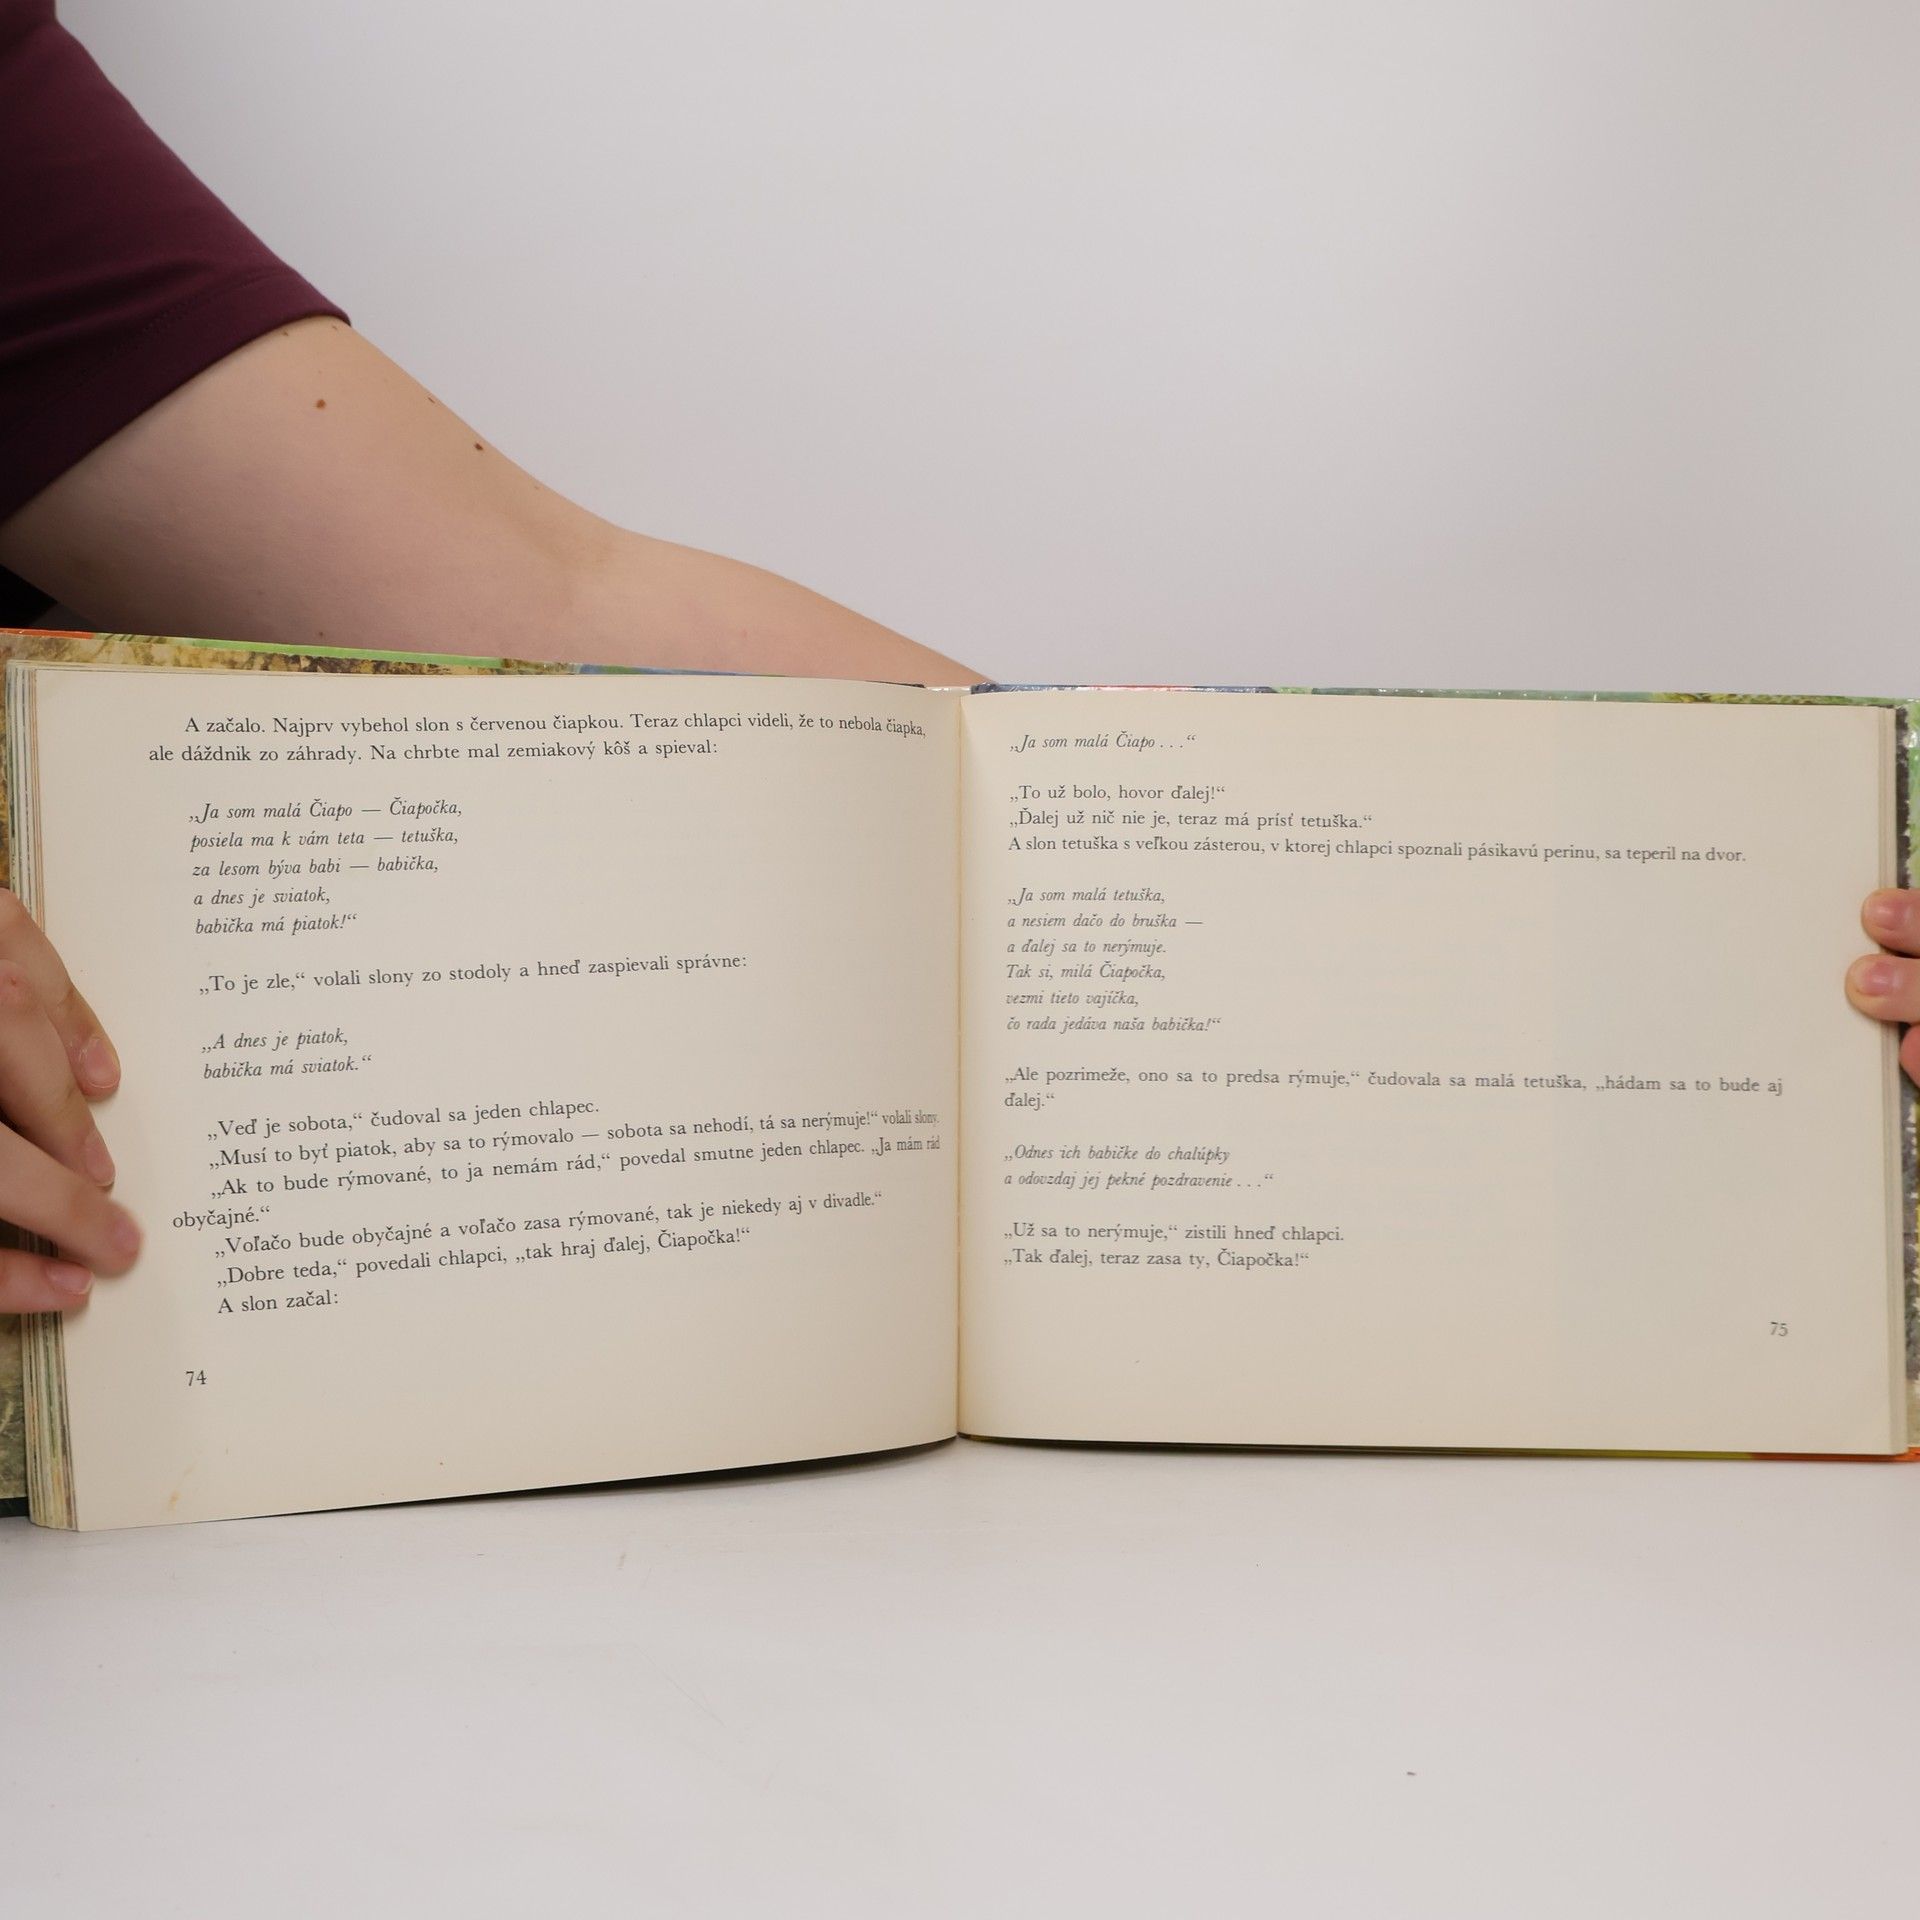 A začalo. Najprv vybehol slon s červenou čiapkou. Teraz chlapci videli, že to nebola čiapka,
ale dáždnik zo záhrady. Na chrbte mal zemiakový kôš a spieval:
„Ja som malá Čiapo — Čiapočka,
posiela ma k vám teta — tetuška,
za lesom býva babi — babička,
a dnes je sviatok,
babička má piatok!“
„To je zle,“ volali slony zo stodoly a hneď zaspievali správne:
„A dnes je piatok,
babička má sviatok.“
„Veď je sobota,“ čudoval sa jeden chlapec.
„Musí to byť piatok, aby sa to rýmovalo — sobota sa nehodí, tá sa nerýmuje!“ volali slony.
„Ak to bude rýmované, to ja nemám rád,“ povedal smutne jeden chlapec. „Ja mám rád
obyčajné.“
„Voľačo bude obyčajné a voľačo zasa rýmované, tak je niekedy aj v divadle.“
„Dobre teda,“ povedali chlapci, „tak hraj ďalej, Čiapočka!“
A slon začal:
74
„Ja som malá Čiapo . . .“
„To už bolo, hovor ďalej!“
„Ďalej už nič nie je, teraz má prísť tetuška.“
A slon tetuška s veľkou zásterou, v ktorej chlapci spoznali pásikavú perinu, sa teperil na dvor.
„Ja som malá tetuška,
a nesiem dačo do bruška —
a ďalej sa to nerýmuje.
Tak si, milá Čiapočka,
vezmi tieto vajíčka,
čo rada jedáva naša babička!“
„Ale pozrimeže, ono sa to predsa rýmuje,“ čudovala sa malá tetuška, „hádam sa to bude aj
ďalej.“
„Odnes ich babičke do chalúpky
a odovzdaj jej pekné pozdravenie . . .“
„Už sa to nerýmuje,“ zistili hneď chlapci.
„Tak ďalej, teraz zasa ty, Čiapočka!“
75